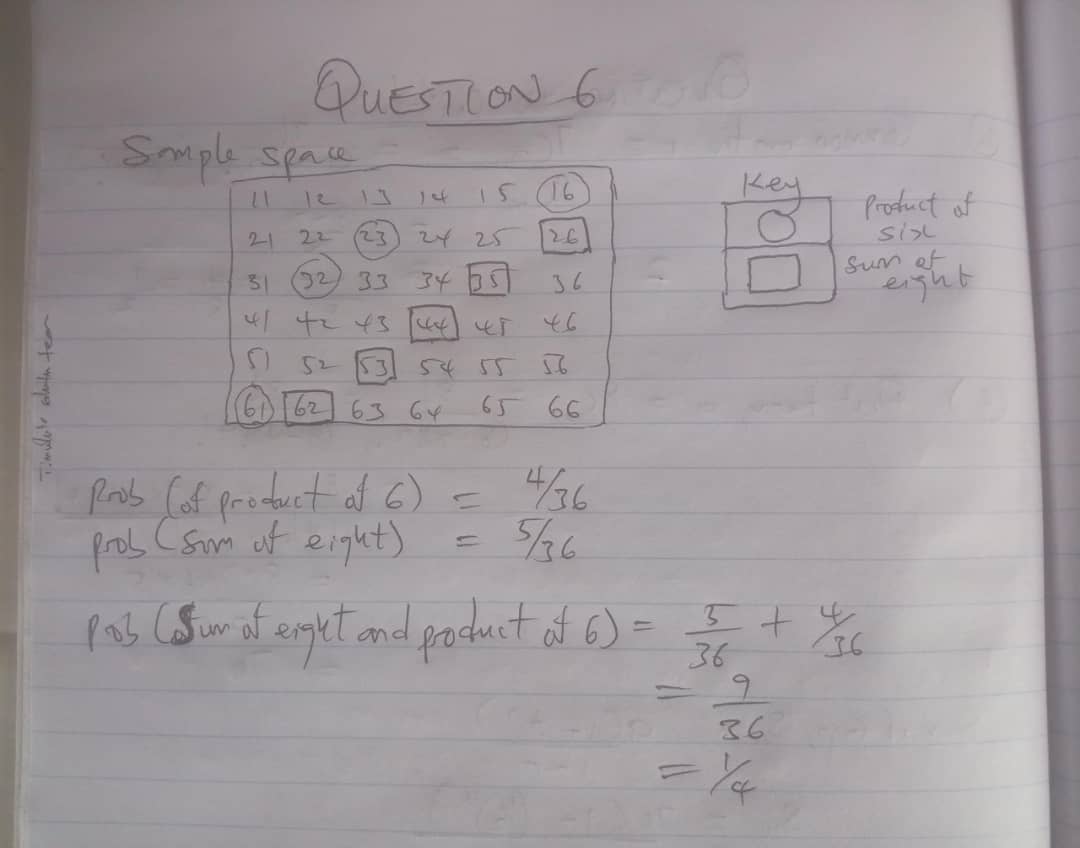 QUESTION 6
Sample space
11 12 13 14 15 16
21 22 23 24 25 26
31 32 33 34 35 36
41 42 43 44 45 46
51 52 53 54 55 56
61 62 63 64 65 66
Key
product of
six
sum of
eight
Prob (of product of 6) = 4/36
prob (sum of eight) = 5/36
prob (Sum of eight and product of 6) = 5/36 + 4/36
= 9/36
= 1/4